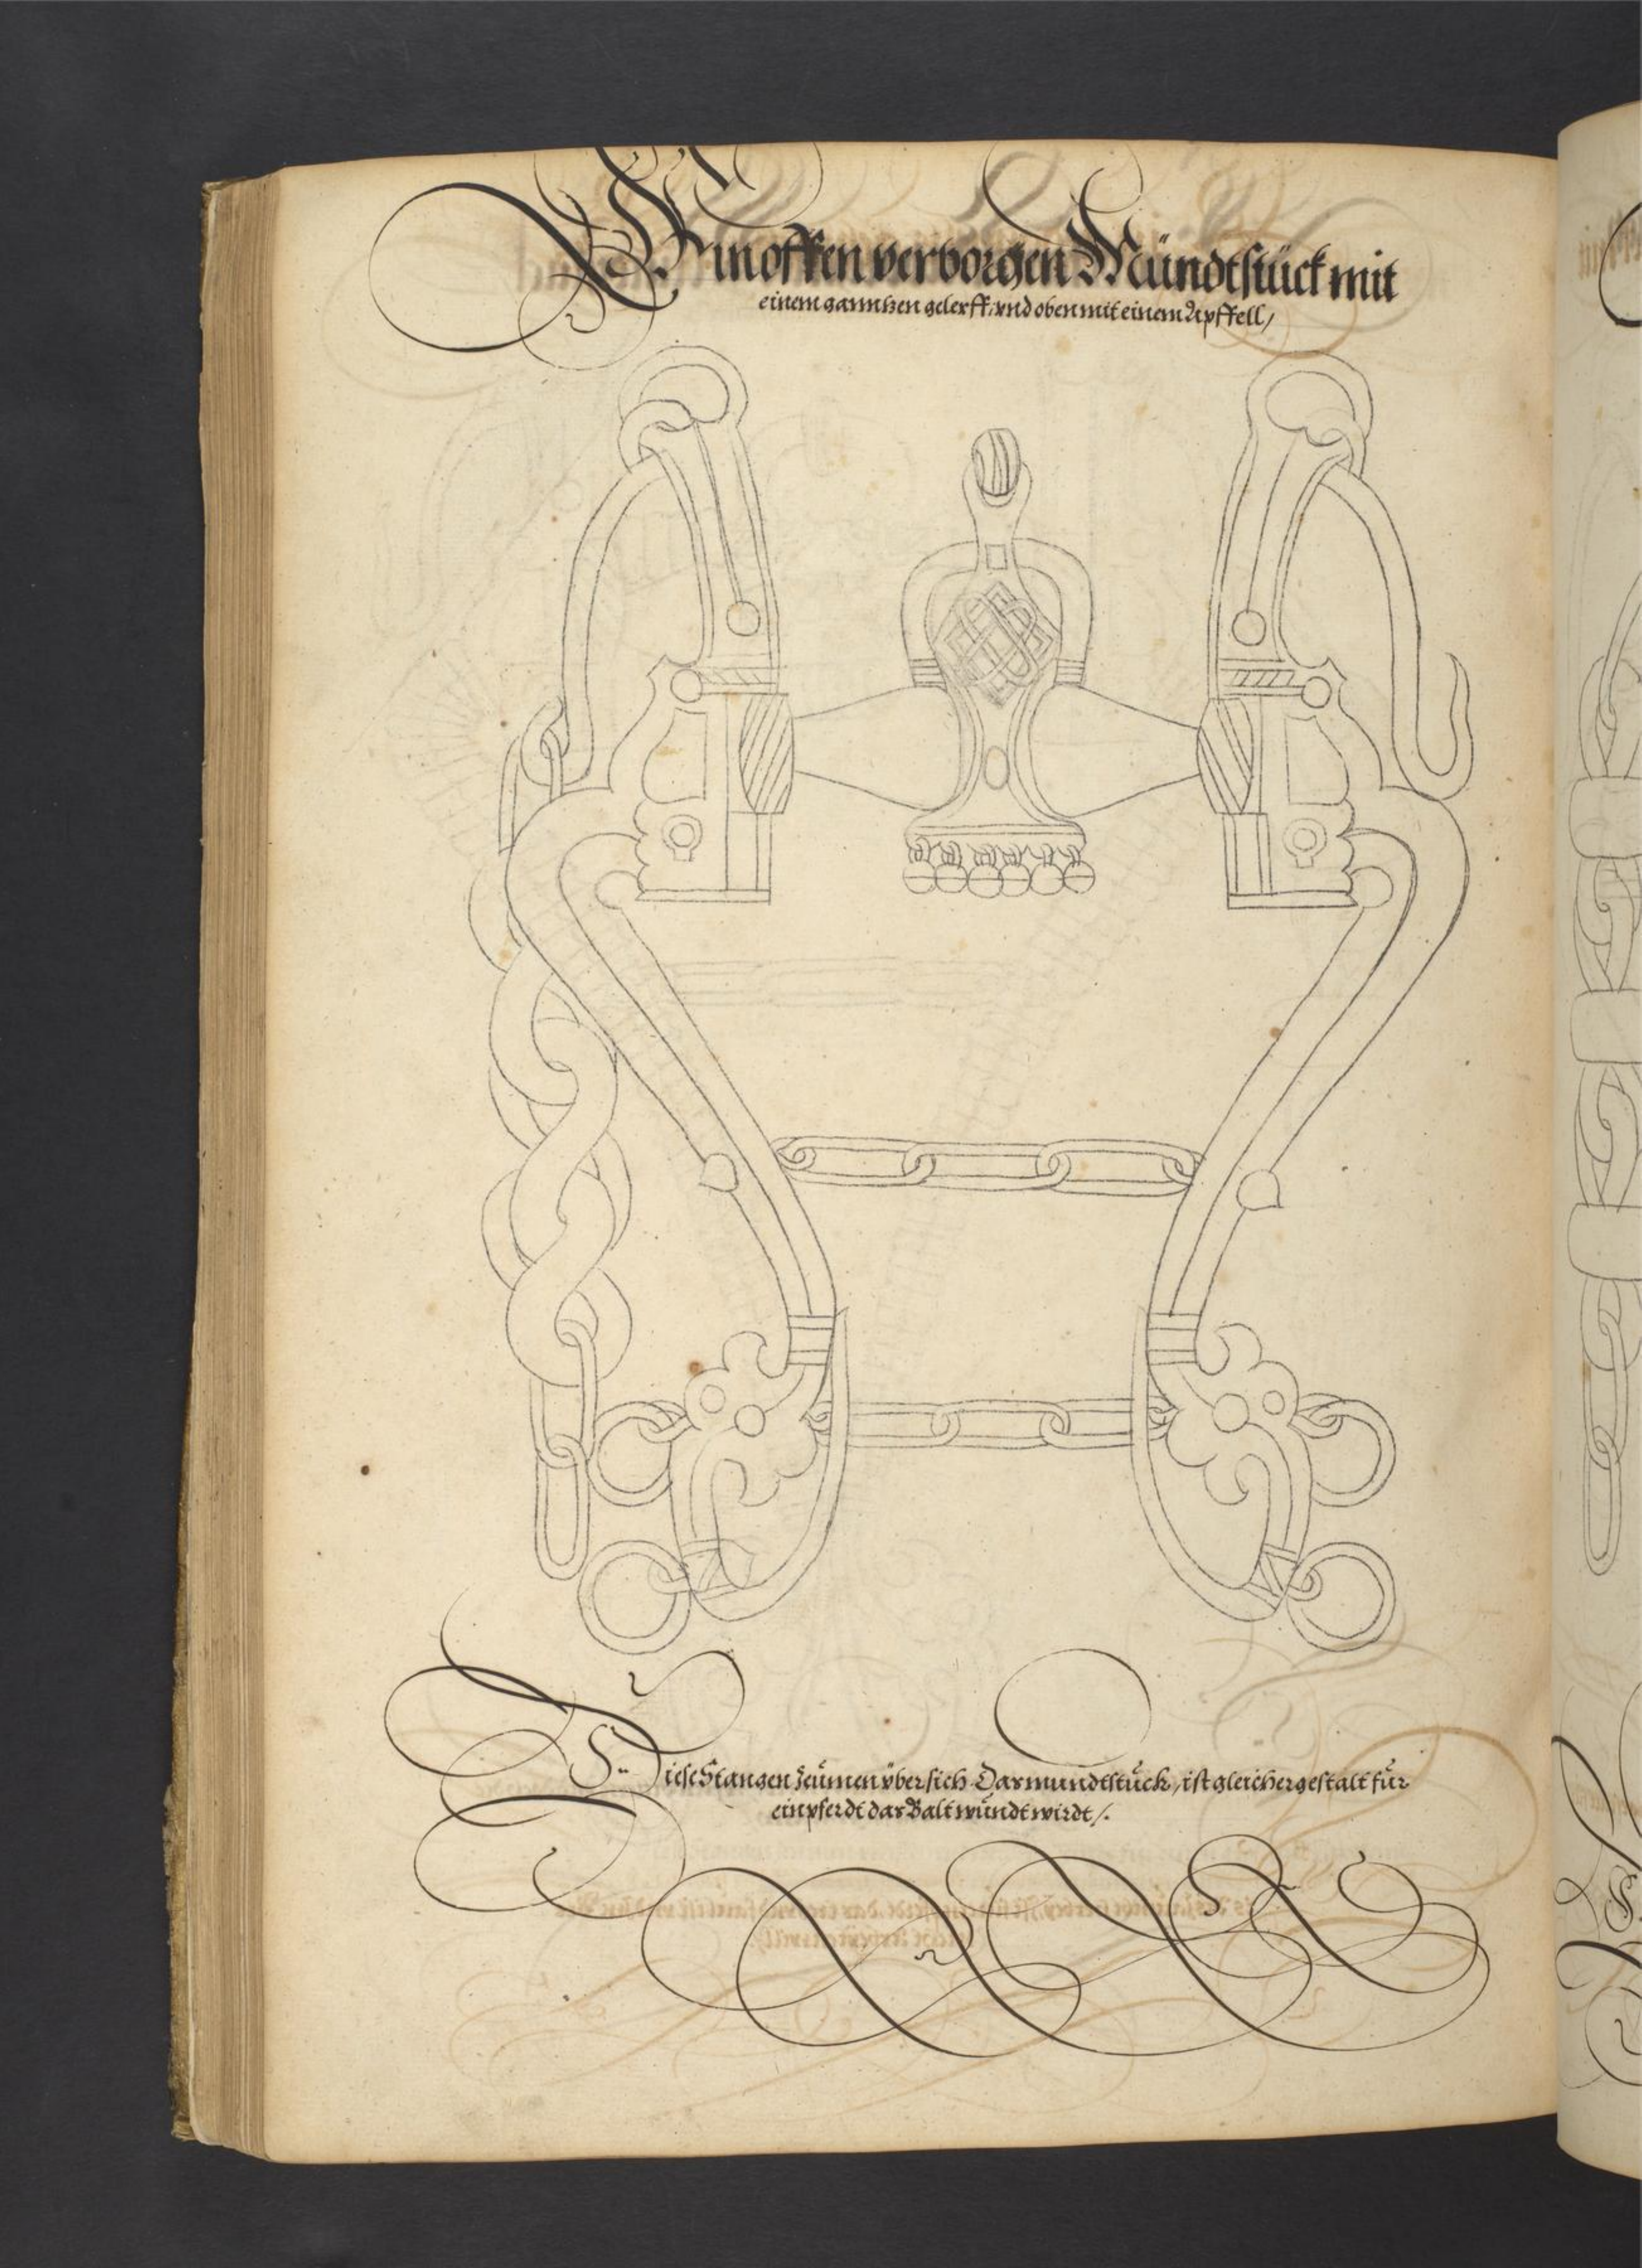 Ein offken verborgen Mündtstück mit
einem ganntzen gelerff, vnd oben mit einem Apffell,
Diese Stangen Zeümen übersich Das mundtstück, ist gleicher gestalt für
ein pferdt das Balt wündt wirdt /.